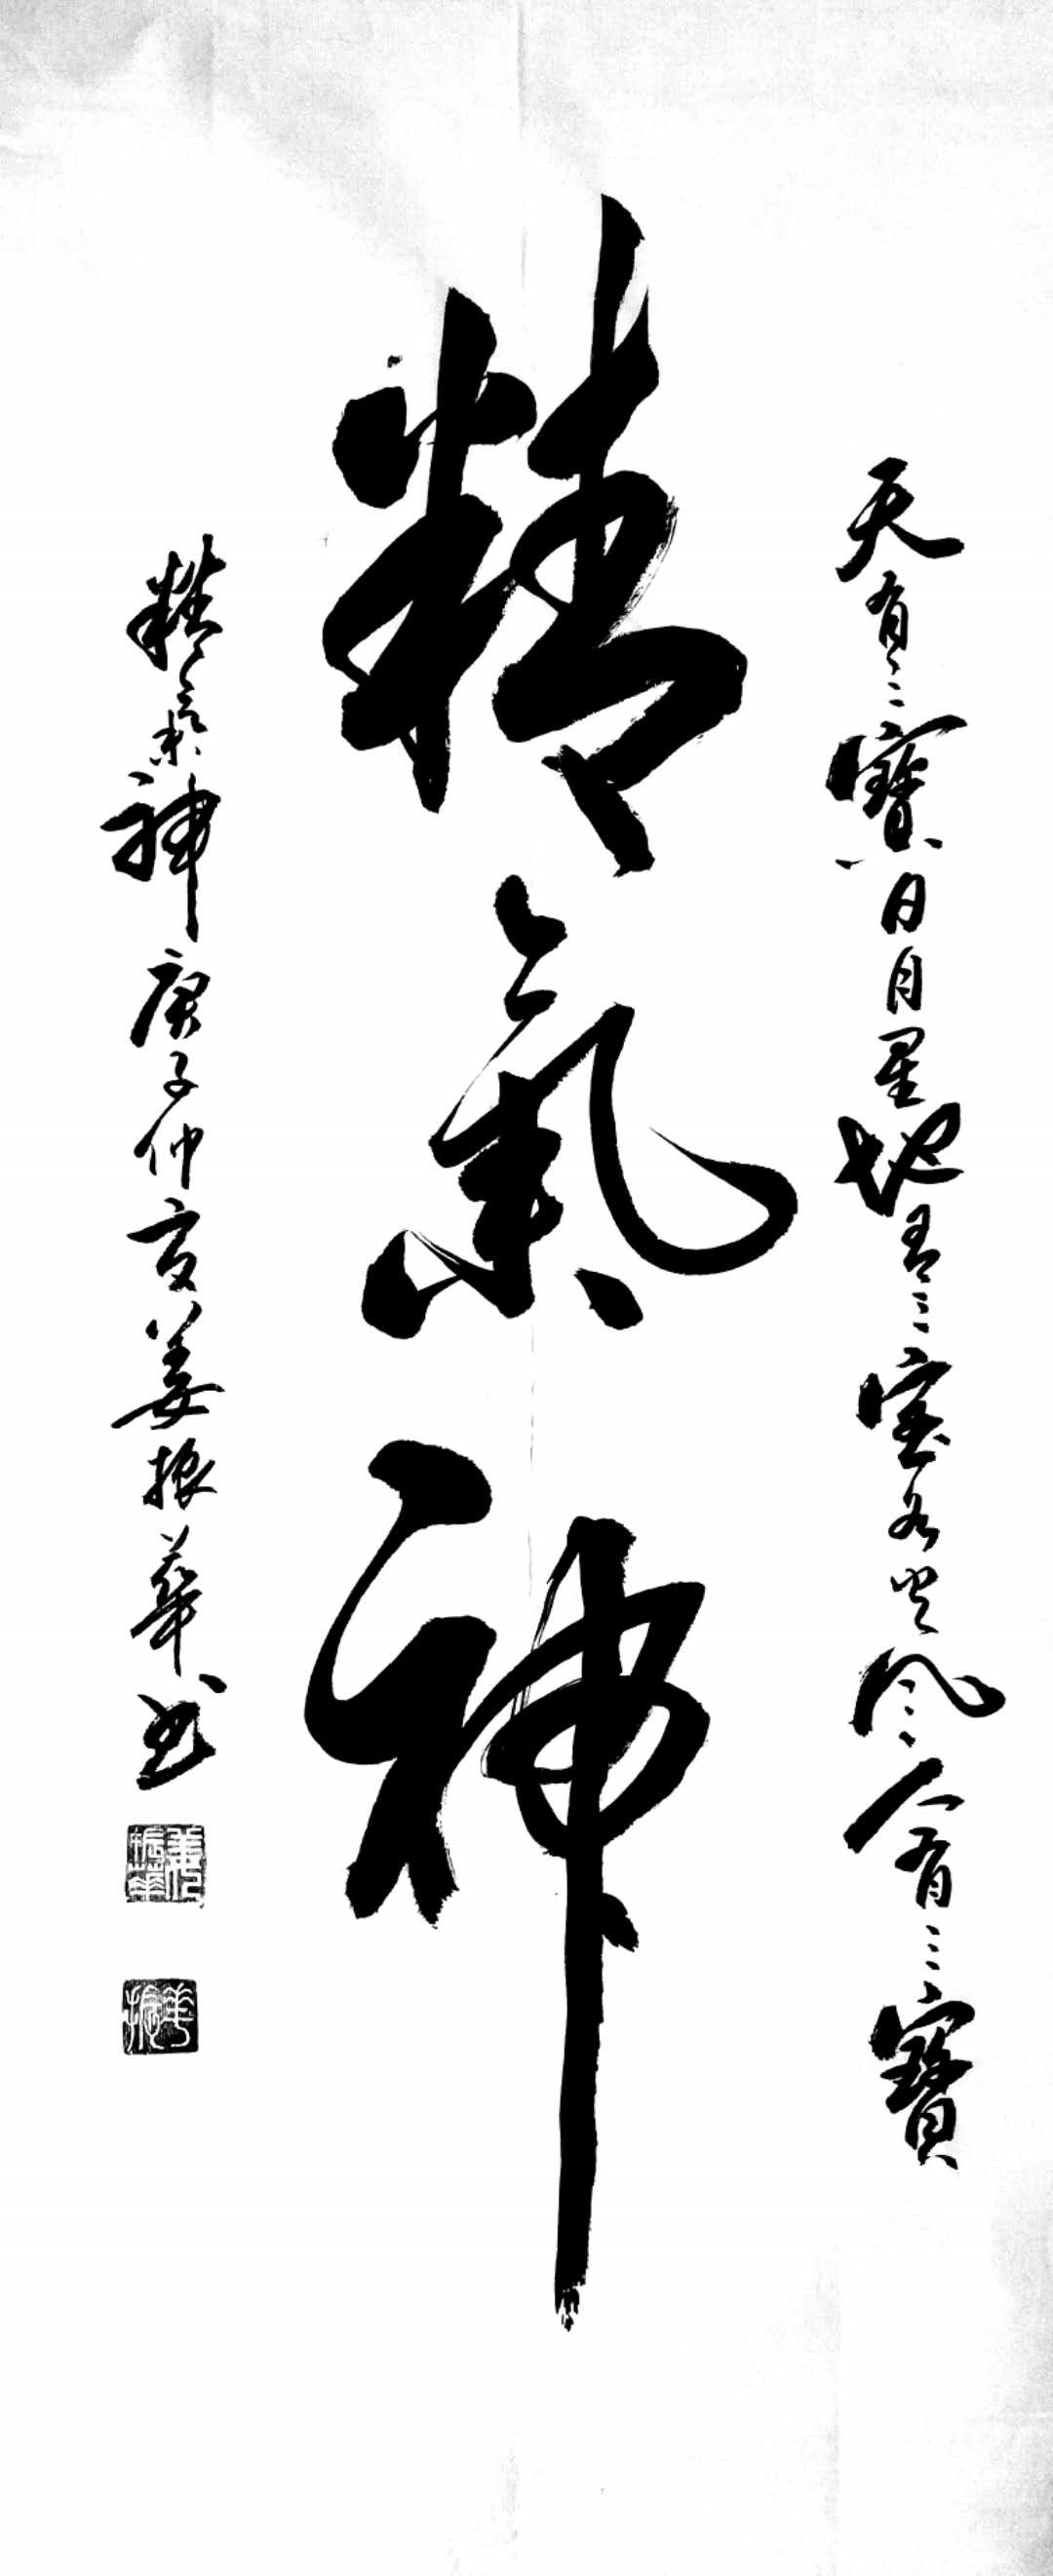 天有三寶日月星地有三寶水火风人有三寶
精氣神
精氣神庚子仲夏姜振華书
姜振華印
振華